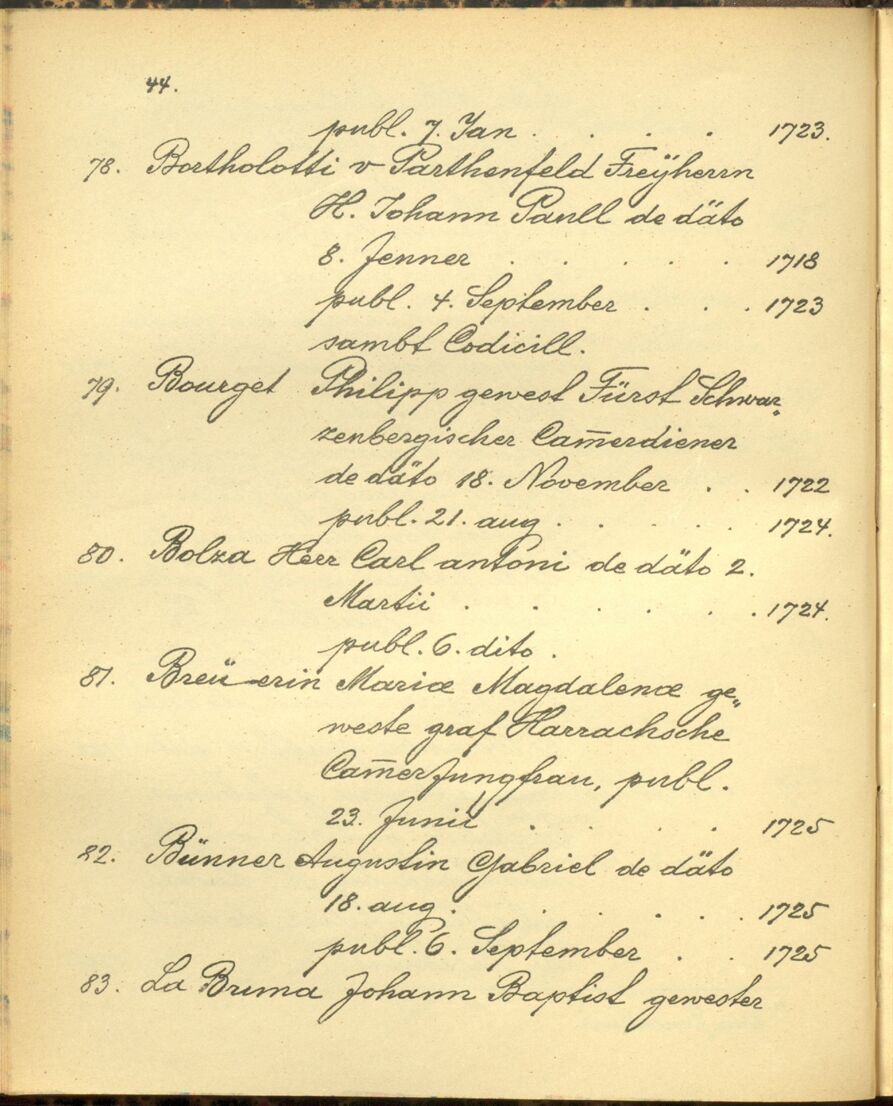 44.
publ. 7. Jan . . . . 1723.
78. Bortholotti v Parthenfeld Freÿherrn
H. Johann Paull de däto
8. Jenner . . . . . 1718
publ. 4. September . . . 1723
sambt Codicill.
79. Bourget Philipp gewest Fürst Schwar„
zenbergischer Cam̄erdiener
de däto 18. November . . 1722
publ. 21. aug . . . . . 1724.
80. Bolza Herr Carl antoni de däto 2.
Martii . . . . . . 1724.
publ. 6. dito .
81. Breü-erin Mariæ Magdalenæ ge„
weste graf Harrachsche
Cam̄erJungfrau, publ.
23. Junii . . . . 1725
82. Bünner Augustin Gabriel de däto
18. aug . . . . . . 1725
publ. 6. September . . 1725
83. La Bruma Johann Baptist gewester